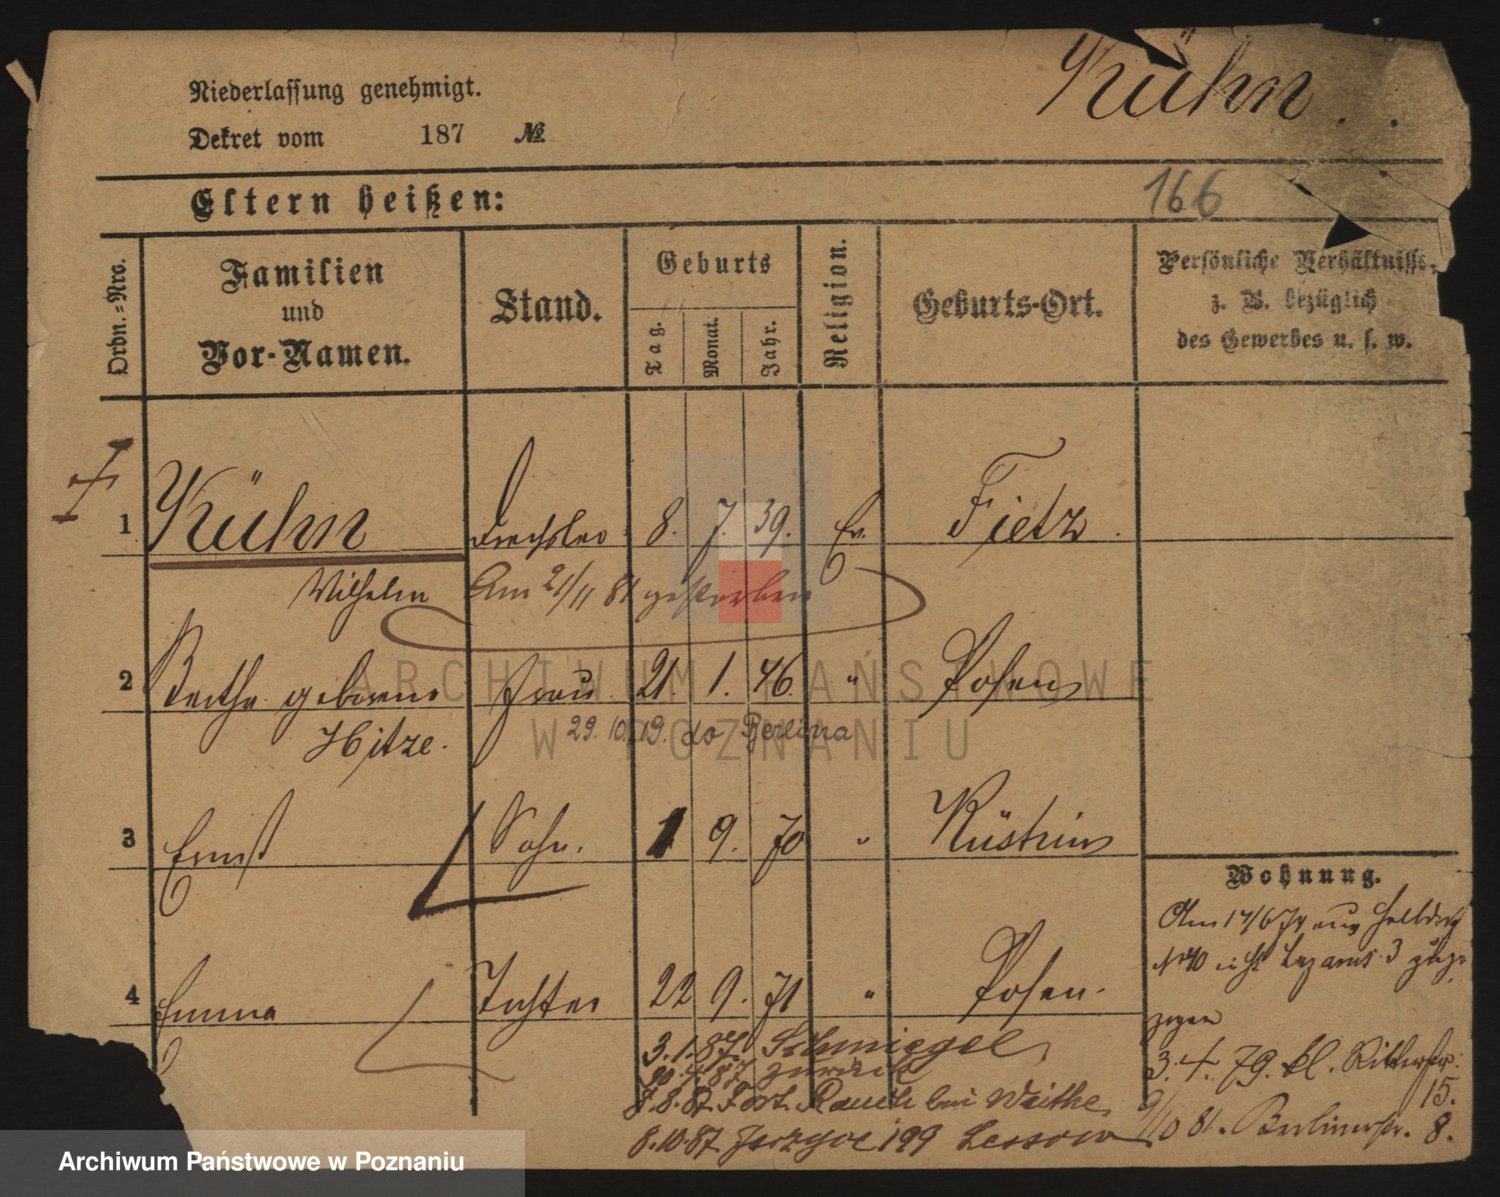 Kühn
Niederlassung genehmigt.
Dekret vom 187 №
Eltern heißen:
166
Ordn.-Nro.
Familien
und
Vor-Namen.
Stand.
Geburts
Tag.
Monat.
Jahr.
Religion.
Geburts-Ort.
Persönliche Verhältnisse,
z. B. bezüglich
des Gewerbes u. s. w.
1 Kühn Drechsler 8. 7. 39. Ev. Tietz.
Wilhelm Am 21/11 81 gestorben
2 Bertha geborene Frau 21. 1. 46. " Posen
Hitze. 29. 10. 19. do Berlina
3 Ernst Sohn. 1 9. 70 " Küstrin
4 Emma Tochter 22 9. 71 " Posen.
3.1.87. Schmiegel
zurück
8.8.87. Fort Rauch bei Weithe
8.10.87 Jerzyce 199 Lessow
Wohnung.
Am 17/6 74 aus
Lazarus 3
zogen
3. 4. 79. kl. Ritterstr.
15.
9/10 81. Berlinerstr. 8.
ARCHIWUM PAŃSTWOWE
W POZNANIU
Archiwum Państwowe w Poznaniu